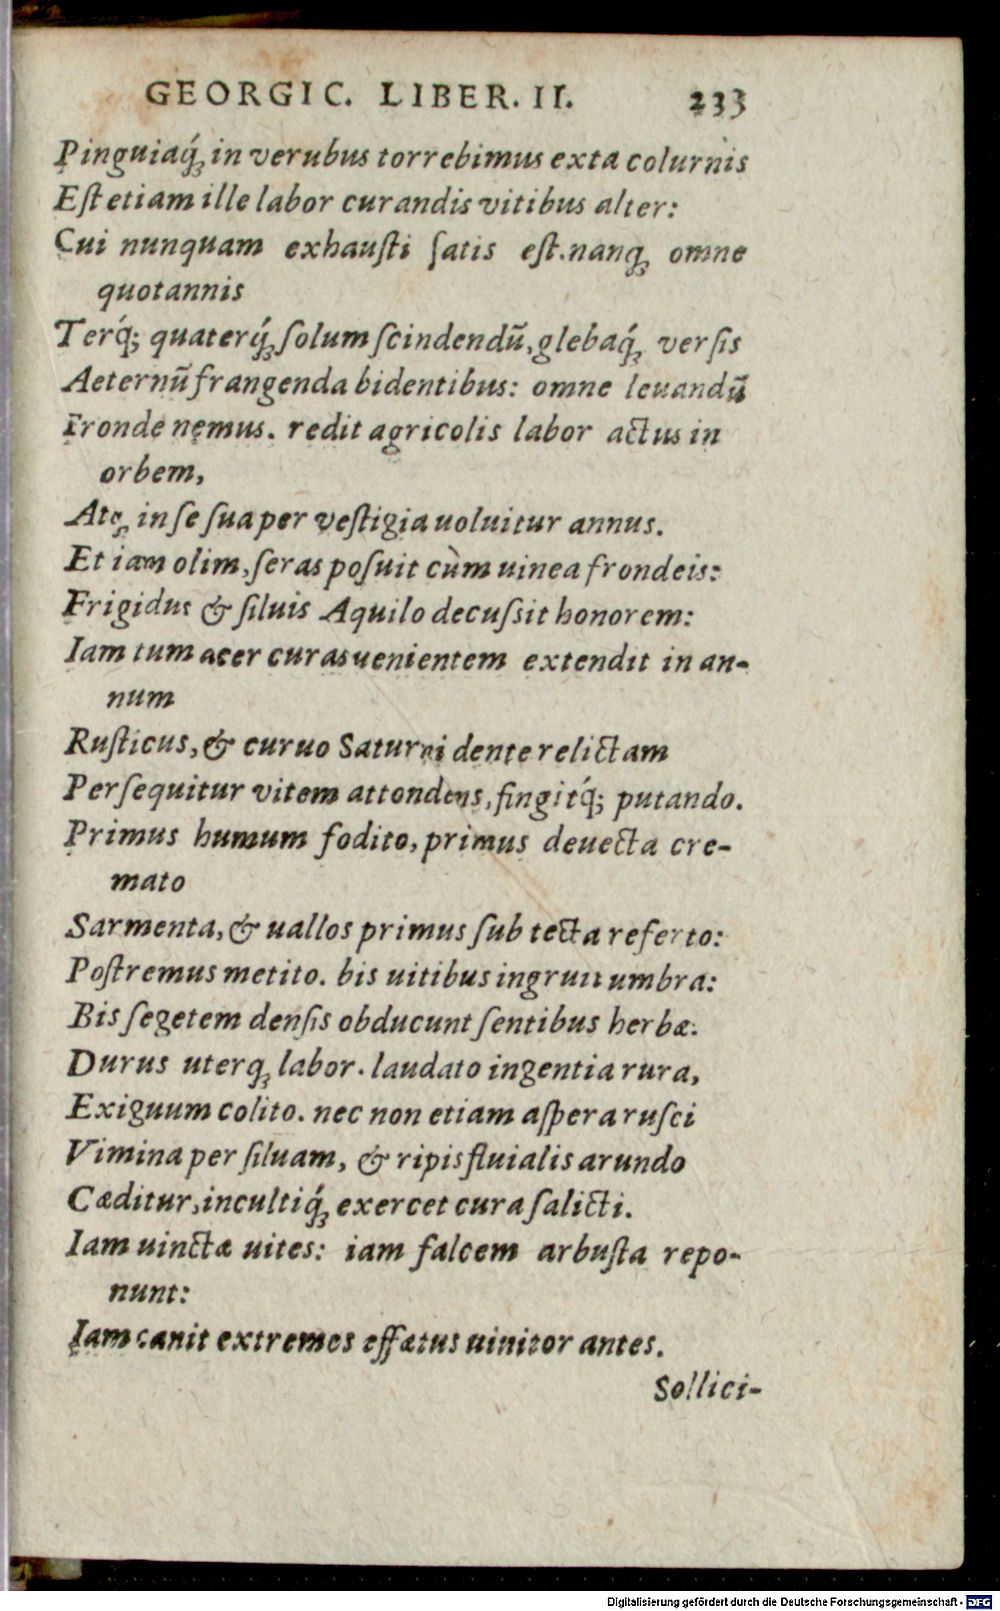 GEORGIC. LIBER. II. 233
Pinguiaq́ꝫ in verubus torrebimus exta colurnis
Eſt etiam ille labor curandis vitibus alter:
Cui nunquam exhauſti ſatis eſt. nanqꝫ omne
quotannis
Terq́; quaterq́ꝫ ſolum ſcindendū, glebaq́ꝫ verſis
Aeternū frangenda bidentibus: omne leuandū
Fronde nemus. redit agricolis labor actus in
orbem,
Atqꝫ in ſe ſua per veſtigia uoluitur annus.
Et iam olim, ſeras poſuit cùm uinea frondeis:
Frigidus & ſiluis Aquilo decuſsit honorem:
Iam tum acer curas uenientem extendit in an-
num
Ruſticus, & curuo Saturni dente relictam
Perſequitur vitem attondens, fingitq́; putando.
Primus humum fodito, primus deuecta cre-
mato
Sarmenta, & uallos primus ſub tecta referto:
Poſtremus metito. bis uitibus ingruit umbra:
Bis ſegetem denſis obducunt ſentibus herbæ.
Durus uterqꝫ labor. laudato ingentia rura,
Exiguum colito. nec non etiam aſpera ruſci
Vimina per ſiluam, & ripis fluialis arundo
Cæditur, incultiq́ꝫ exercet cura ſalicti.
Iam uinctæ uites: iam falcem arbuſta repo-
nunt:
Iam canit extremos effætus uinitor antes.
Sollici-
Digitalisierung gefördert durch die Deutsche Forschungsgemeinschaft - DFG